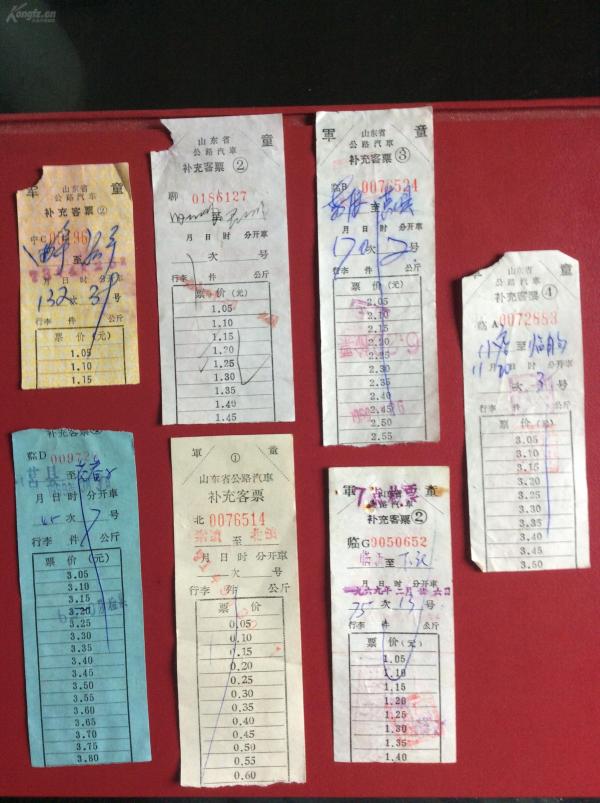 Kongfz.cn
軍 童
山东省
公路汽车
补充客票②
宁C
至
月 日 时 分开車
132次3号
行李 件 公斤
票价(元)
1.05
1.10
1.15
童
山东省
公路汽車
补充客票②
聊 0186127
至
月 日 时 分开車
次 号
行李 件 公斤
票价(元)
1.05
1.10
1.15
1.20
1.25
1.30
1.35
1.40
1.45
軍 童
山东省
公路汽車
补充客票③
临B 0076524
至
月 日 时 分开車
次 2 号
行李 件 公斤
票价(元)
2.05
2.10
2.15
2.20
2.25
2.30
2.35
2.40
2.45
2.50
2.55
童
山东省
公路汽車
补充客票④
临A 0072883
至 临朐
11月20日 时 分开車
次 3 号
行李 件 公斤
票价(元)
3.05
3.10
3.15
3.20
3.25
3.30
3.35
3.40
3.45
3.50
补充客票
临D
至
月 日 时 分开車
次 7 号
行李 件 公斤
票价(元)
3.05
3.10
3.15
3.20
3.25
3.30
3.35
3.40
3.45
3.50
3.55
3.60
3.65
3.70
3.75
3.80
軍 ① 童
山东省公路汽車
补充客票
北 0076514
至
月 日 时 分开車
次 号
行李 件 公斤
票价
0.05
0.10
0.15
0.20
0.25
0.30
0.35
0.40
0.45
0.50
0.55
0.60
軍 童
山东省
公路汽車
补充客票②
临G 0050652
至
月 日 时 分开車
一九六九年二月廿六日
75次13号
行李 件 公斤
票价(元)
1.05
1.10
1.15
1.20
1.25
1.30
1.35
1.40